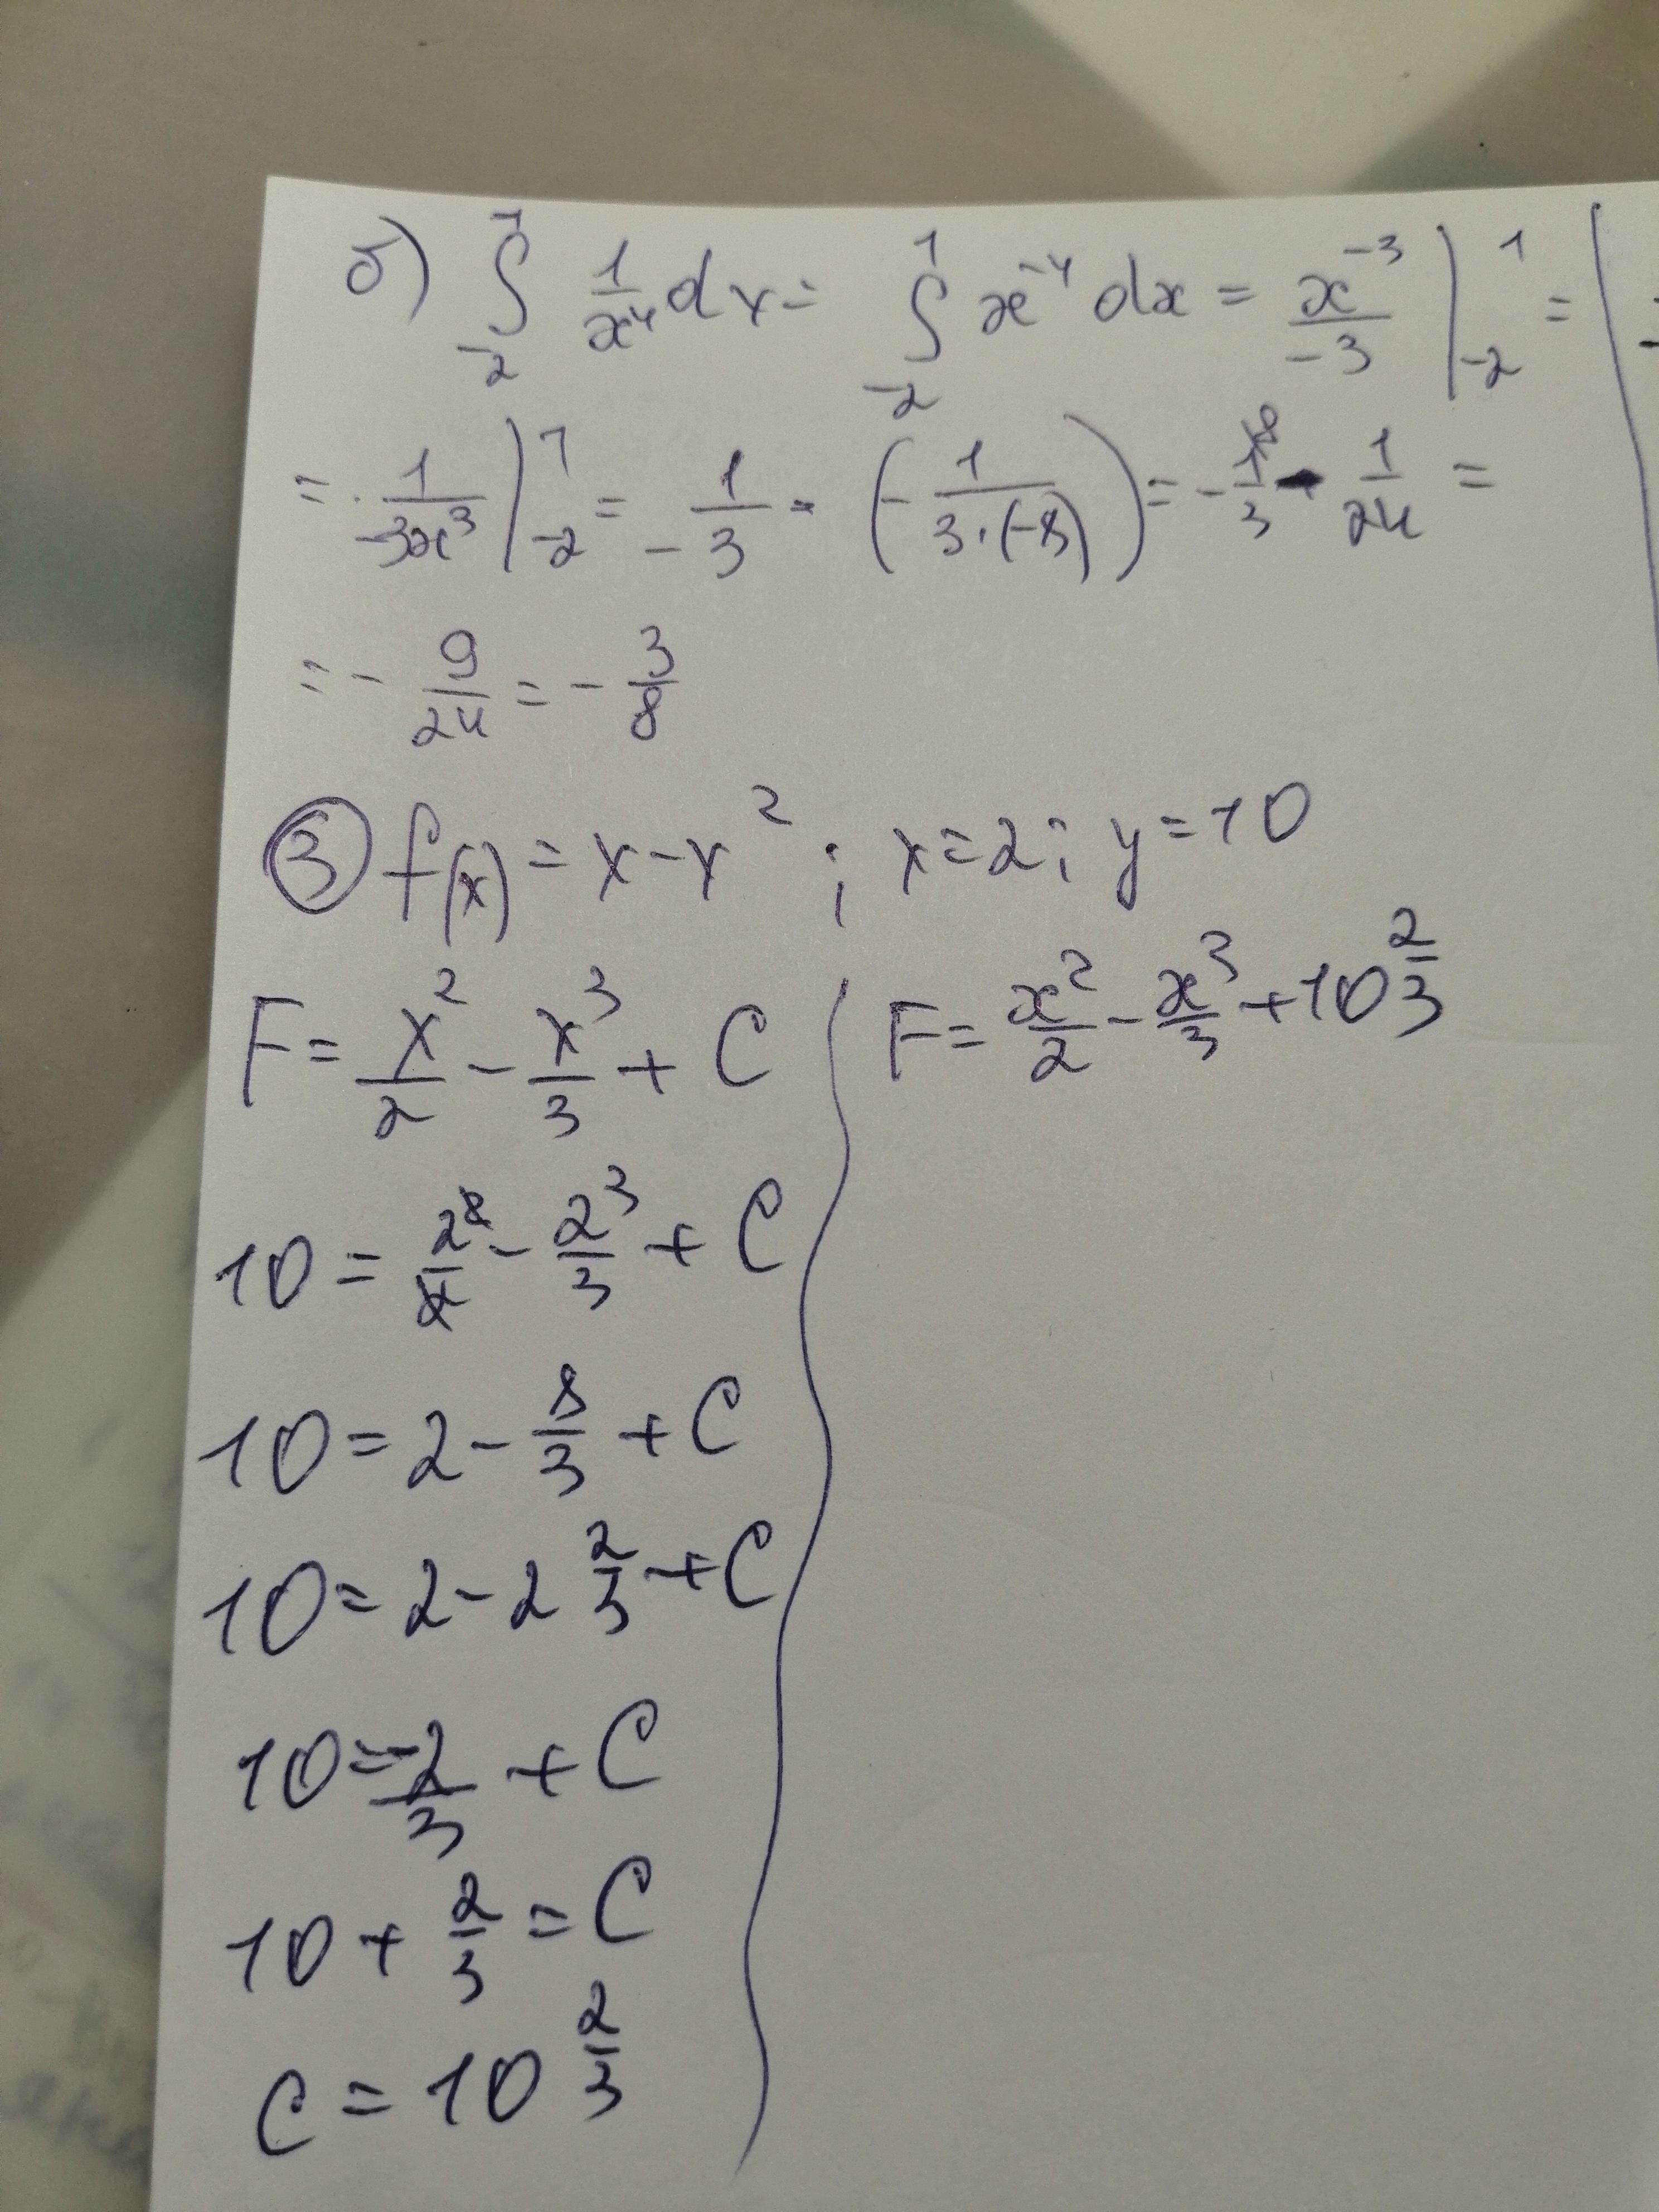 б) ∫₋₂¹ 1/x⁴ dx = ∫₋₂¹ x⁻⁴ dx = x⁻³/-3 |₋₂¹ =
= 1/-3x³ |₋₂¹ = -1/3 - (-1/3·(-8)) = -1/3\8 - 1/24 =
= -9/24 = -3/8
③ f(x) = x-x²; x=2; y=10
F= x²/2 - x³/3 + C
10 = 2²/2 - 2³/3 + C
10 = 2 - 8/3 + C
10 = 2 - 2 2/3 + C
10 = -2/3 + C
10 + 2/3 = C
C = 10 2/3
F= x²/2 - x³/3 + 10 2/3